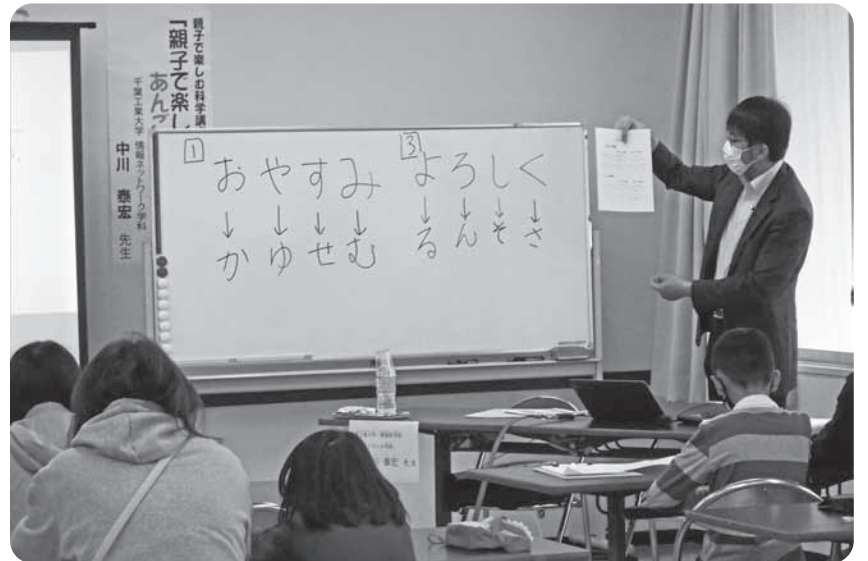 親子で楽しむ科学講
「親子で楽し
あん
千葉工業大学 情報ネットワーク学科
中川 泰宏 先生
1 おやすみ
↓ ↓ ↓ ↓
かゆせむ
3 よろしく
↓ ↓ ↓ ↓
るんそさ
泰宏 先生